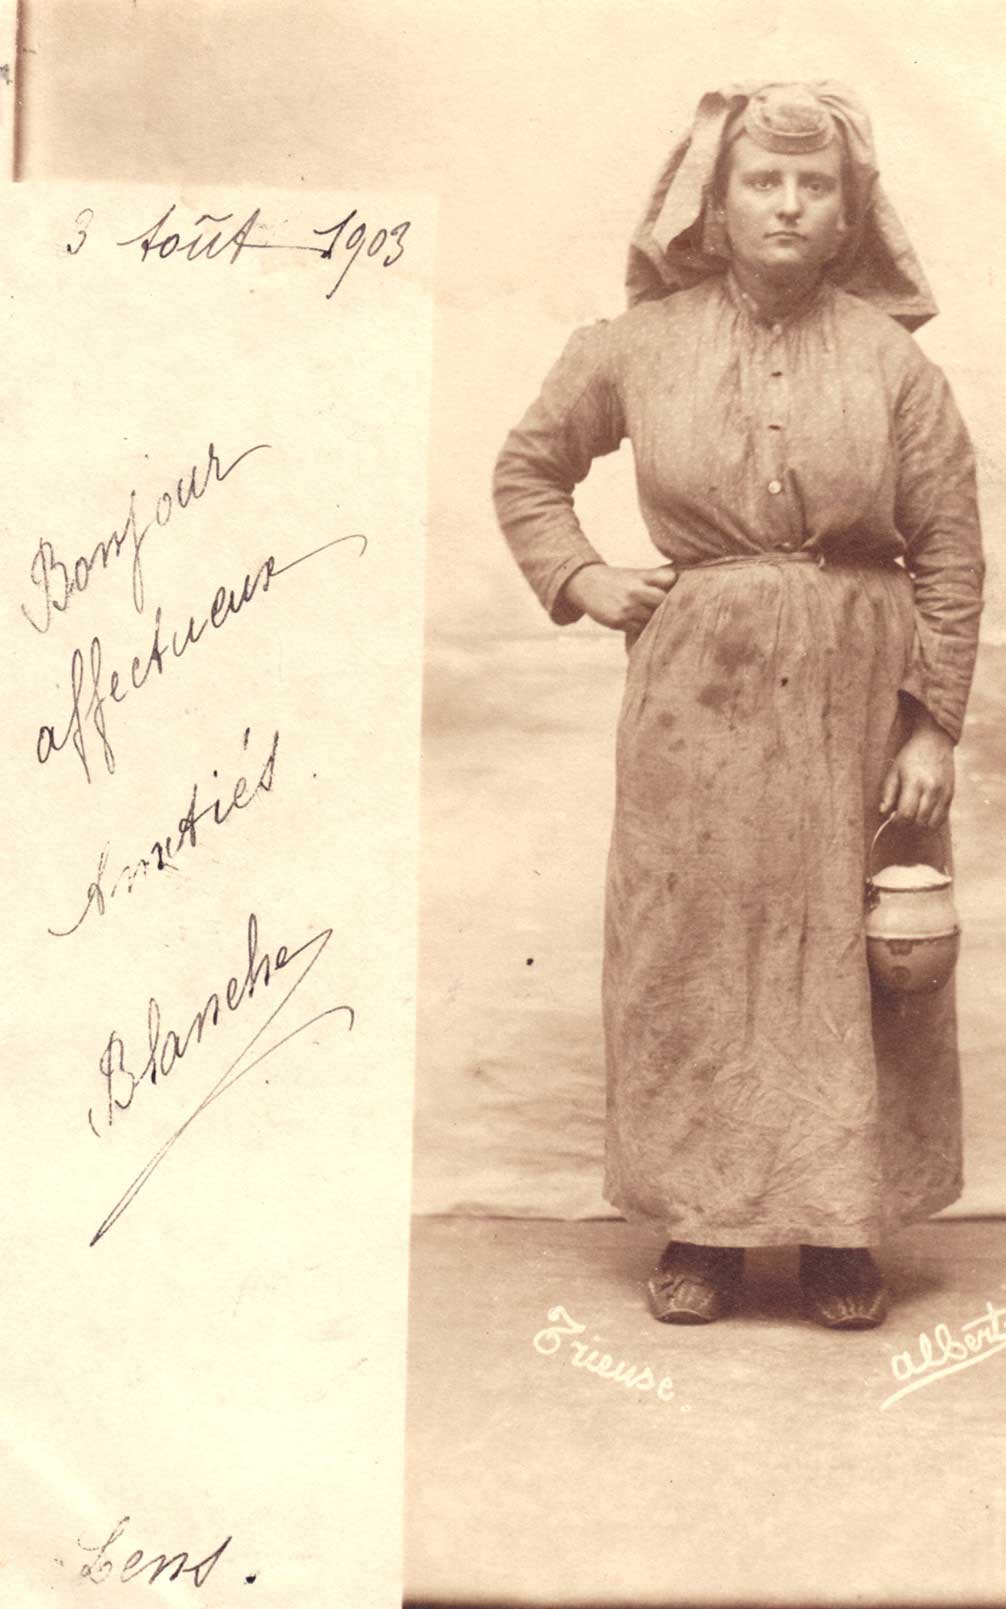 3 Août 1903
Bonjour
affectueux
Amitiés.
Blanche
Lens.
Trieuse
alberts